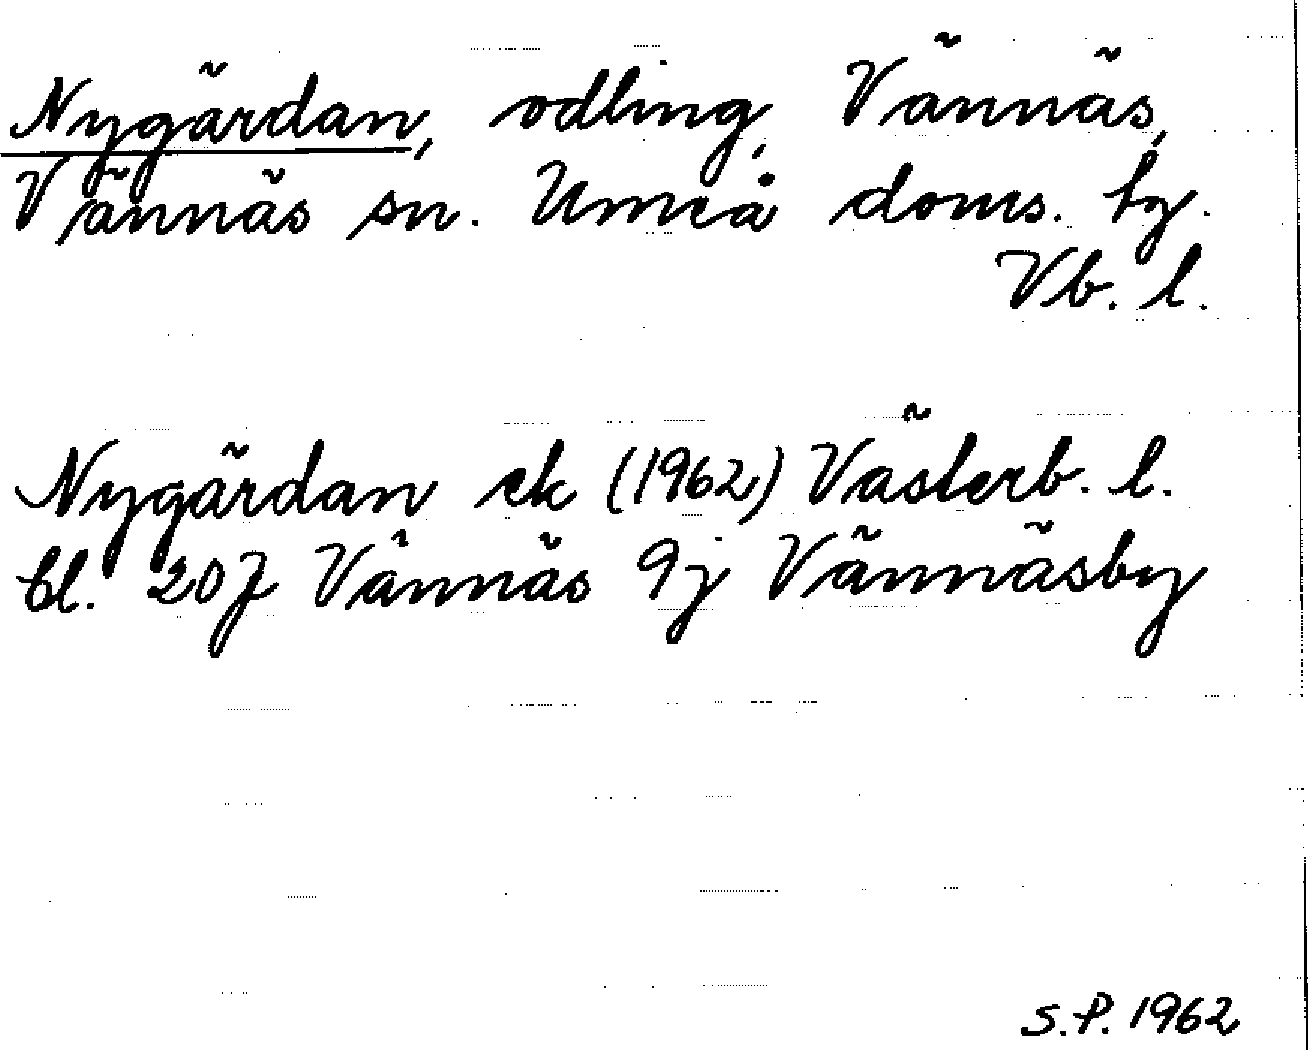 Nygärdan, odling, Vännäs,
Vännäs sn. Umeå doms. hg.
Vb. l.
Nygärdan ek (1962) Västerb. l.
bl. 20J Vännäs 9j Vännäsby
S.P. 1962